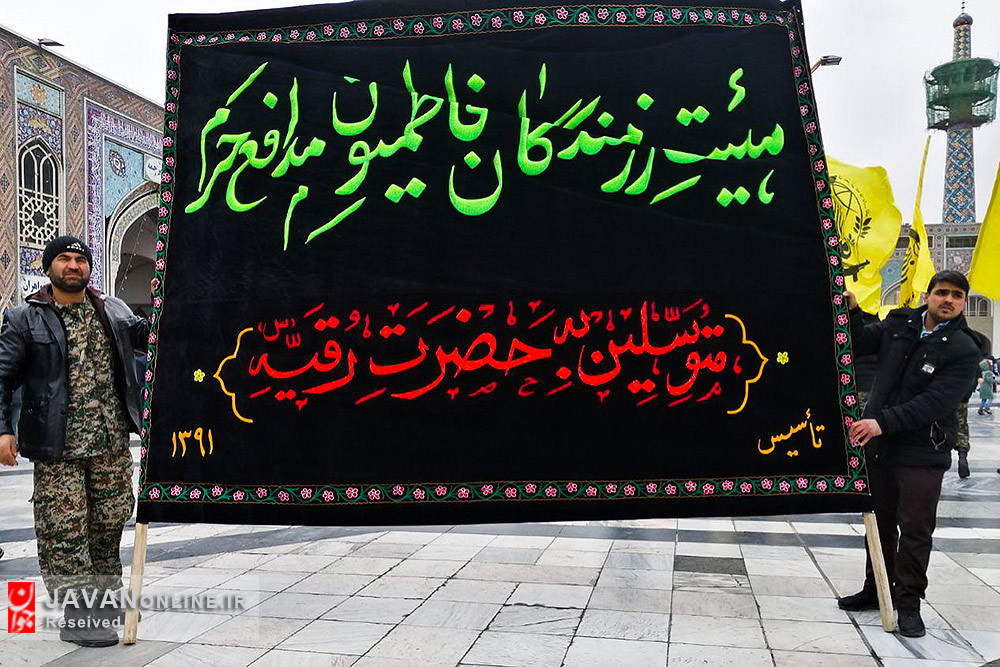 هیئتِ رزمندگان فاطمیون مدافع حرم
متوسّلین به حضرَت رُقیّه
تأسیس ۱۳۹۱
JAVANONLINE.IR
Reserved